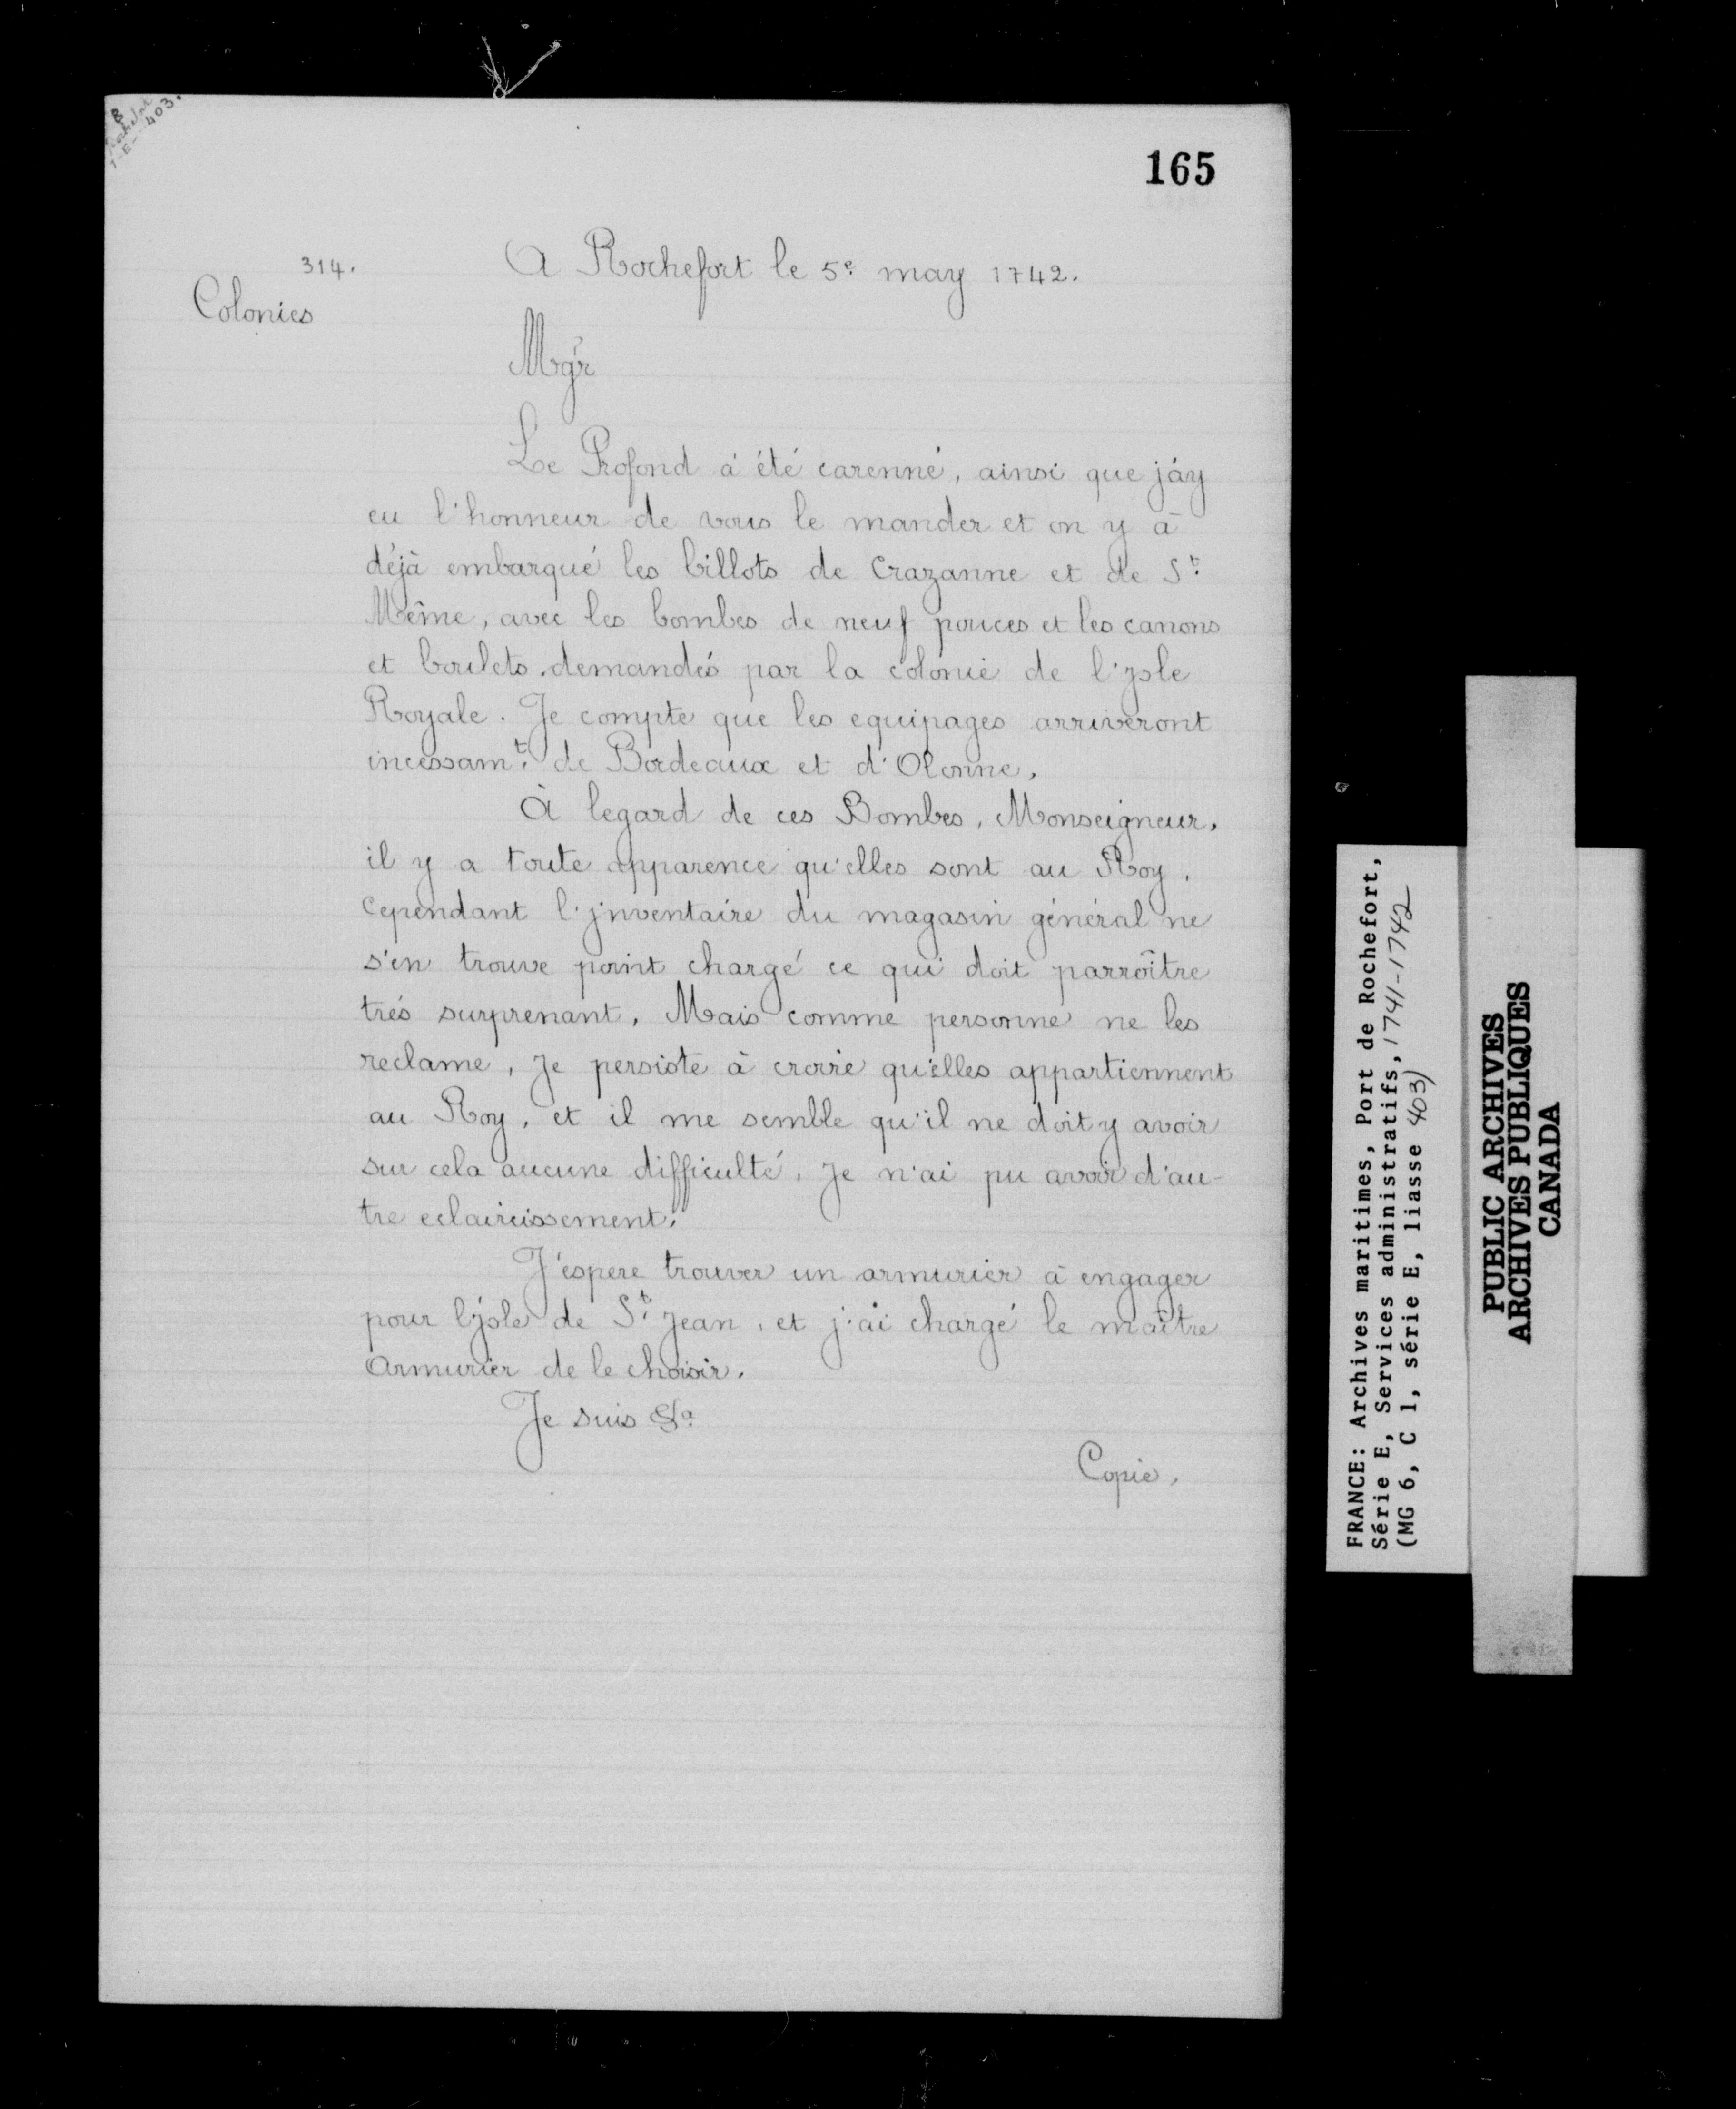 8
Rochefort
1-E-403.
165
314.
Colonies
A Rochefort le 5e may 1742.
Mgr
Le Profond a été carenné, ainsi que j'ay
eu l'honneur de vous le mander et on y à
déjà embarqué les billots de Crazanne et de St
Même, avec les bombes de neuf pouces et les canons
et boulets demandés par la colonie de l'ysle
Royale. Je compte que les equipages arriveront
incessamt. de Bordeaux et d'Olonne.
À legard de ces Bombes, Monseigneur,
il y a toute apparence qu'elles sont au Roy.
Cependant l'jnventaire du magasin général ne
s'en trouve point chargé ce qui doit parroître
trés surprenant. Mais comme personne ne les
reclame, Je persiste à croire qu'elles appartiennent
au Roy, et il me semble qu'il ne doit y avoir
sur cela aucune difficulté. Je n'ai pu avoir d'au-
tre eclaircissement.
J'espere trouver un armurier à engager
pour l'ysle de St Jean, et j'ai chargé le maître
Armurier de le choisir.
Je suis &a
Copie.
FRANCE: Archives maritimes, Port de Rochefort,
Série E, Services administratifs, 1741-1742
(MG 6, C 1, série E, liasse 403)
PUBLIC ARCHIVES
ARCHIVES PUBLIQUES
CANADA